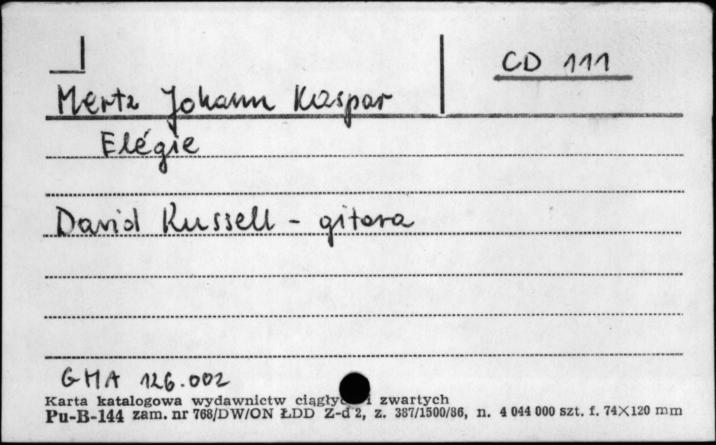 CD 111
Mertz Johann Kaspar
Elégie
David Russell - gitara
GMA 126.002
Karta katalogowa wydawnictw ciągłych i zwartych
Pu-B-144 zam. nr 768/DW/ON ŁDD Z-d 2, z. 387/1500/86, n. 4 044 000 szt. f. 74×120 mm